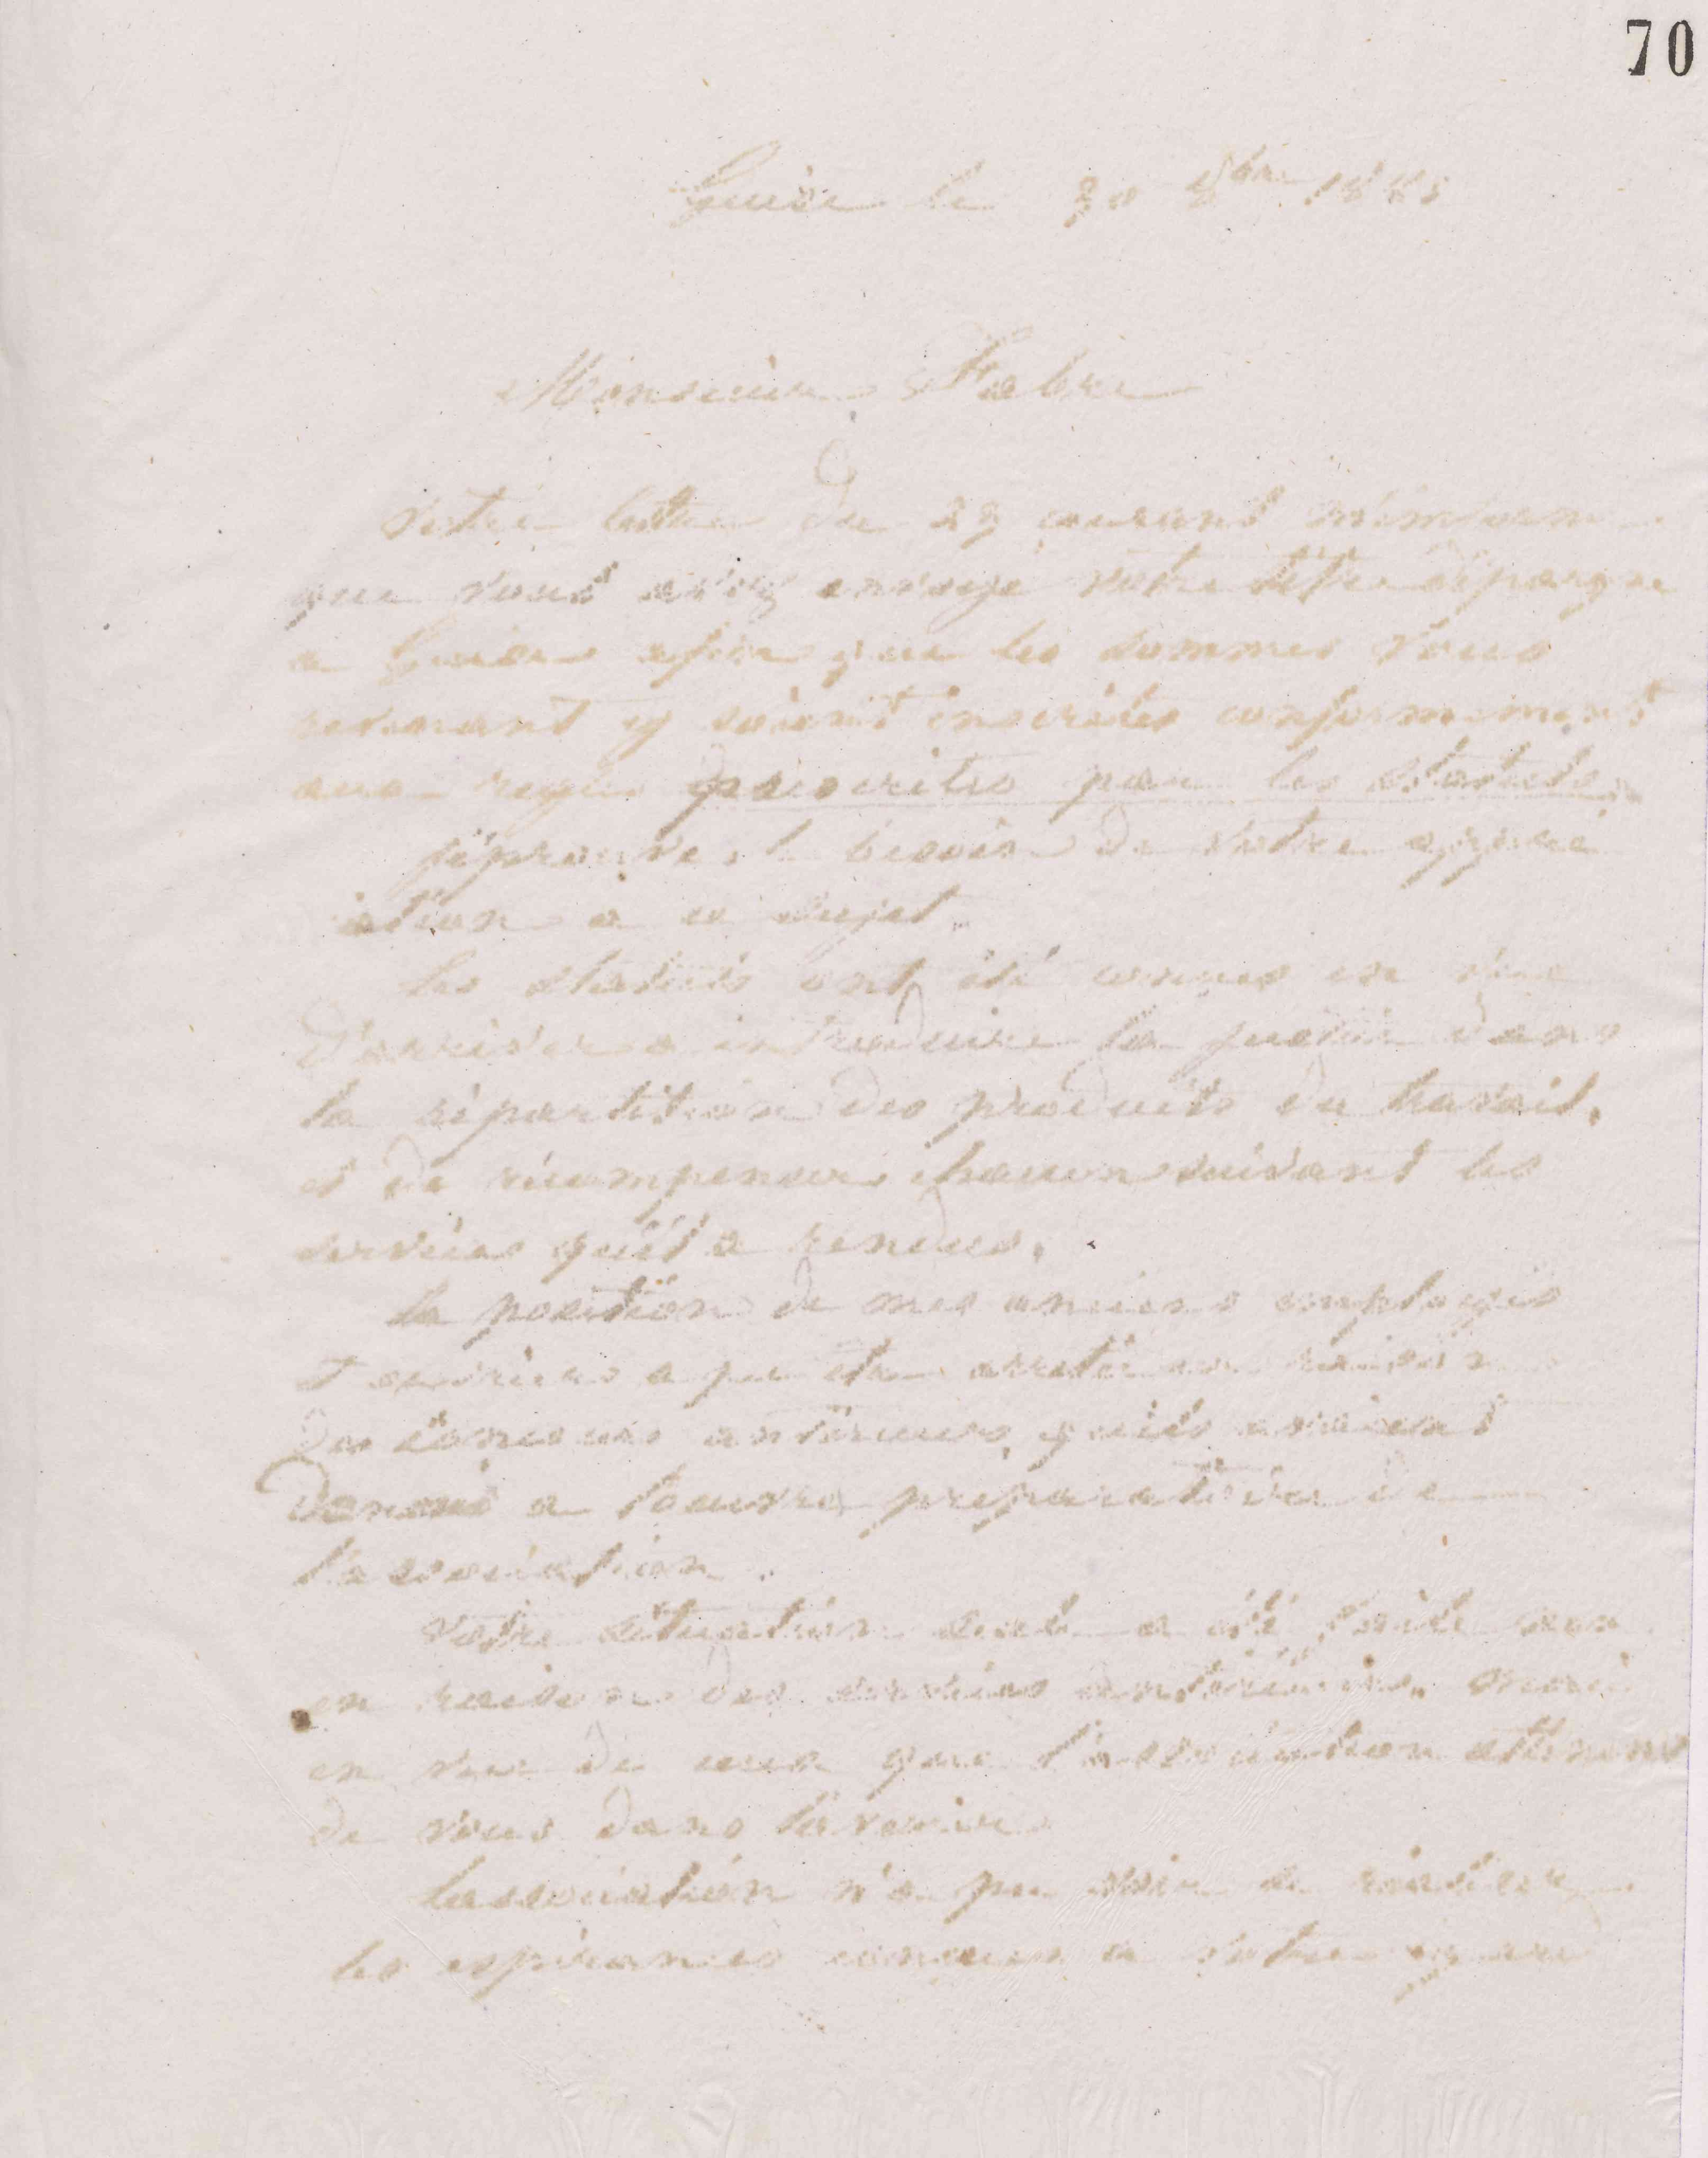 70
Guise le 30 1881
Monsieur Fabre
Votre lettre du 29 courant m'informe
que vous avez envoyé votre titre d'épargne
a Guise afin que les sommes vous
revenant y soient inscrites conformement
aux regles prescrites par les statuts.
J'éprouve le besoin de votre appreci
ation a ce sujet.
Les statuts ont été conçus en vue
d'arriver a introduire la justice dans
la répartition des produits du travail,
et de récompenser chacun suivant les
services qu'il a rendus.
La position de mes anciens employés
et ouvriers a pu etre arretée en raison
des concours antérieurs qu'ils avaient
donné a l'œuvre préparative de
l'association.
Votre situation a été faite non
en raison des services antérieurs, mais
en vue de ceux que l'association attend
de vous dans l'avenir.
L'association n'a pu voir se réaliser
les espérances conçues a votre egard